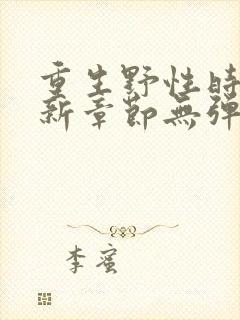 重生野性時
新章節無彈
李蜜